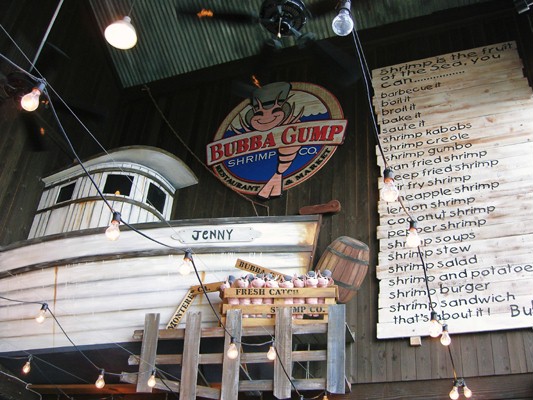 BUBBA GUMP
SHRIMP CO.
RESTAURANT & MARKET
JENNY
BUBBA
MONTEREY
FRESH CATCH
SHRIMP CO.
Shrimp is the fruit
of the sea, you
can..............
barbecue it
boil it
broil it
bake it
saute it
shrimp kabobs
shrimp creole
shrimp gumbo
pan fried shrimp
deep fried shrimp
stir fry shrimp
pineapple shrimp
lemon shrimp
coconut shrimp
pepper shrimp
shrimp soups
shrimp stew
shrimp salad
shrimp and potatoes
shrimp burger
shrimp sandwich
that's about it! Bu